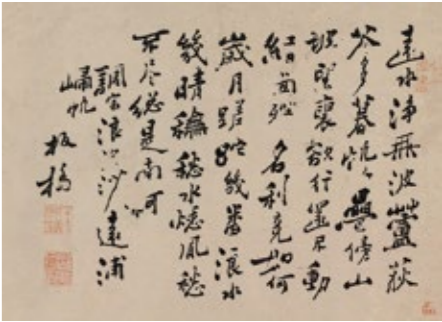 遠水淨無波蘆荻
花多暮帆疊傍山
坡望裏欲行還不動
紅日 名利竟如何
歲月蹉跎幾番浪
幾晴 愁水愁風愁
不尽總是南柯
調寄浪淘沙遠浦
歸帆
板橋